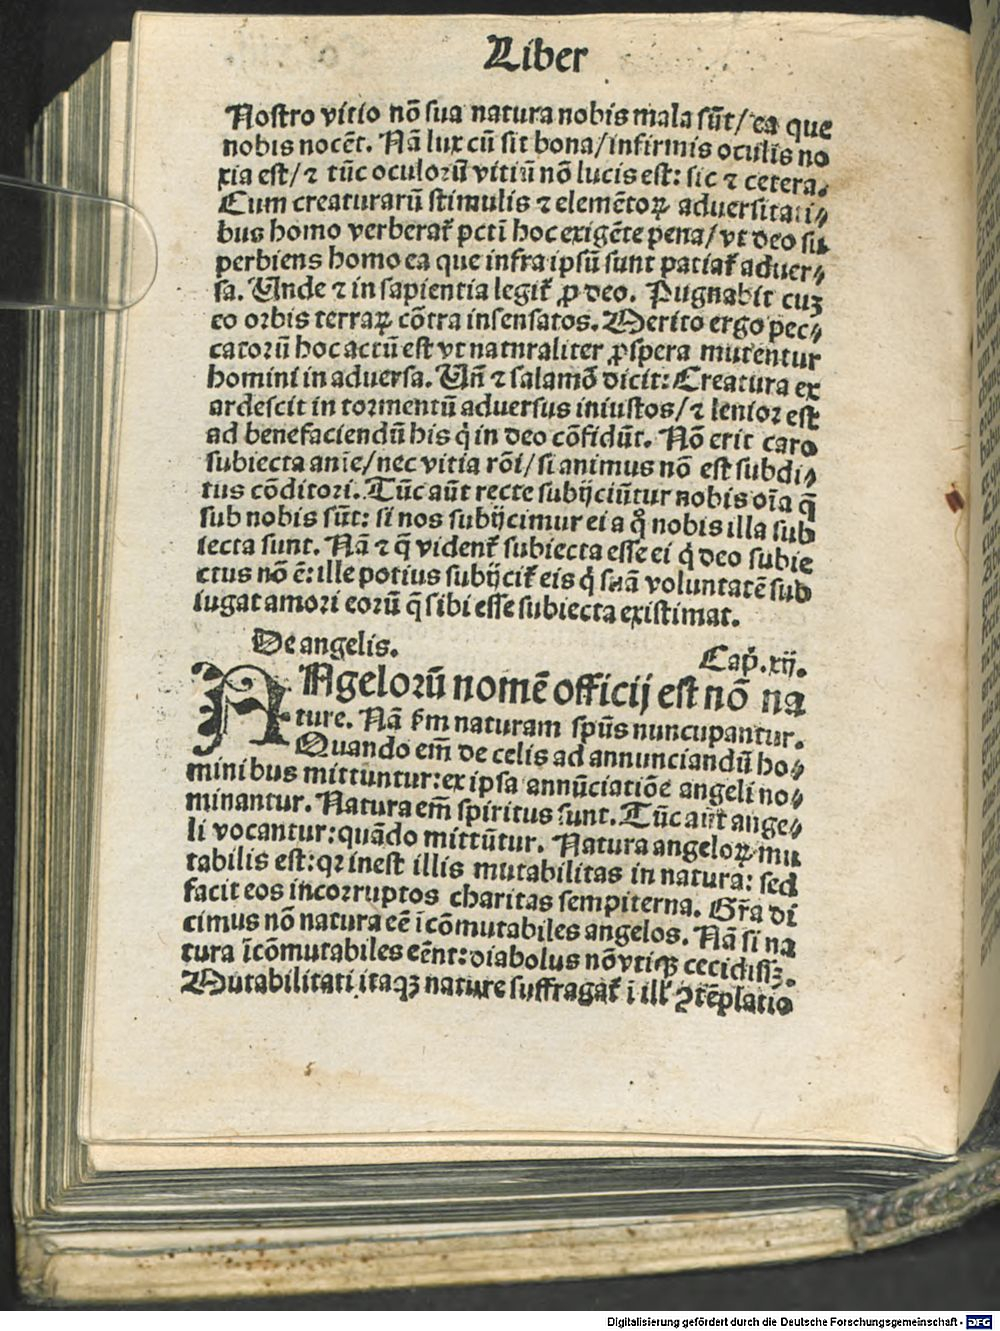 Liber
Nostro vitio nõ sua natura nobis mala sũt/ ea que
nobis nocẽt. Nã lux cũ sit bona/ infirmis oculis no
xia est/ ⁊ tũc oculoꝛũ vitiũ nõ lucis est: sic ⁊ cetera.
Cum creaturarũ stimulis ⁊ elemẽtoꝝ adversitati⸗
bus homo verberat᷑ pctĩ hoc exigẽte pena/ vt deo su
perbiens homo ea que infra ipsũ sunt patiat᷑ adver⸗
sa. Unde ⁊ in sapientia legit᷑ ꝓ deo. Pugnabit cuꝫ
eo oꝛbis terraꝝ cõtra insensatos. Merito ergo pec⸗
catoꝛũ hoc actũ est vt natnraliter ꝓspera mutentur
homini in adversa. Uñ ⁊ salamõ dicit: Creatura ex
ardescit in toꝛmentũ adversus iniustos/ ⁊ lenioꝛ est
ad benefaciendũ his q̇ in deo cõfidũt. Nõ erit caro
subiecta anĩe/ nec vitia rõi/ si animus nõ est subdi⸗
tus cõditori. Tũc aũt recte subijciũtur nobis oĩa q̃
sub nobis sũt: si nos subijcimur ei a q̊ nobis illa sub
iecta sunt. Nã ⁊ q̃ vident᷑ subiecta esse ei q̇ deo subie
ctus nõ ẽ: ille potius subijcit᷑ eis q̇ suã voluntatẽ sub
iugat amori eoꝛũ q̃ sibi esse subiecta existimat.
De angelis. Cap̃. xij.
ANgeloꝛũ nomẽ officij est nõ na
ture. Nã ẜm naturam spũs nuncupantur.
Quando em̃ de celis ad annunciandũ ho⸗
minibus mittuntur: ex ipsa annũciatiõe angeli no⸗
minantur. Natura em̃ spiritus sunt. Tũc aũt ange⸗
li vocantur: quãdo mittũtur. Natura angeloꝝ mu
tabilis est: qꝛ inest illis mutabilitas in natura: sed
facit eos incoꝛruptos charitas sempiterna. Gr̃a di
cimus nõ natura eẽ ĩcõmutabiles angelos. Nã si na
tura ĩcõmutabiles eẽnt: diabolus nõ vtiqꝫ cecidissꝫ.
Mutabilitati itaqꝫ nature suffragat᷑ ĩ ill᷑ ꝯtẽplatio
Digitalisierung gefördert durch die Deutsche Forschungsgemeinschaft - DFG